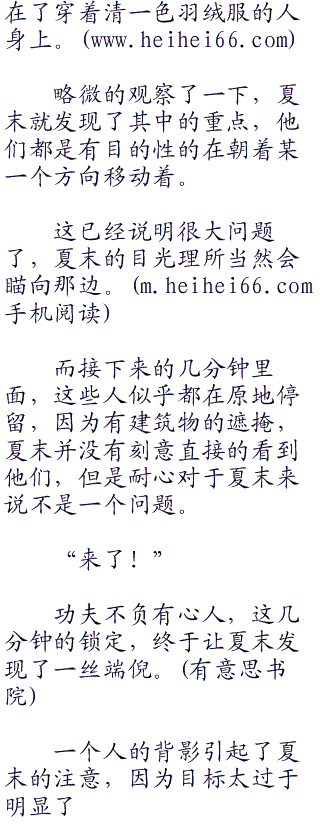 在了穿着清一色羽绒服的人
身上。(www.heihei66.com)
略微的观察了一下，夏
末就发现了其中的重点，他
们都是有目的性的在朝着某
一个方向移动着。
这已经说明很大问题
了，夏末的目光理所当然会
瞄向那边。(m.heihei66.com
手机阅读)
而接下来的几分钟里
面，这些人似乎都在原地停
留，因为有建筑物的遮掩，
夏末并没有刻意直接的看到
他们，但是耐心对于夏末来
说不是一个问题。
“来了！”
功夫不负有心人，这几
分钟的锁定，终于让夏末发
现了一丝端倪。(有意思书
院)
一个人的背影引起了夏
末的注意，因为目标太过于
明显了